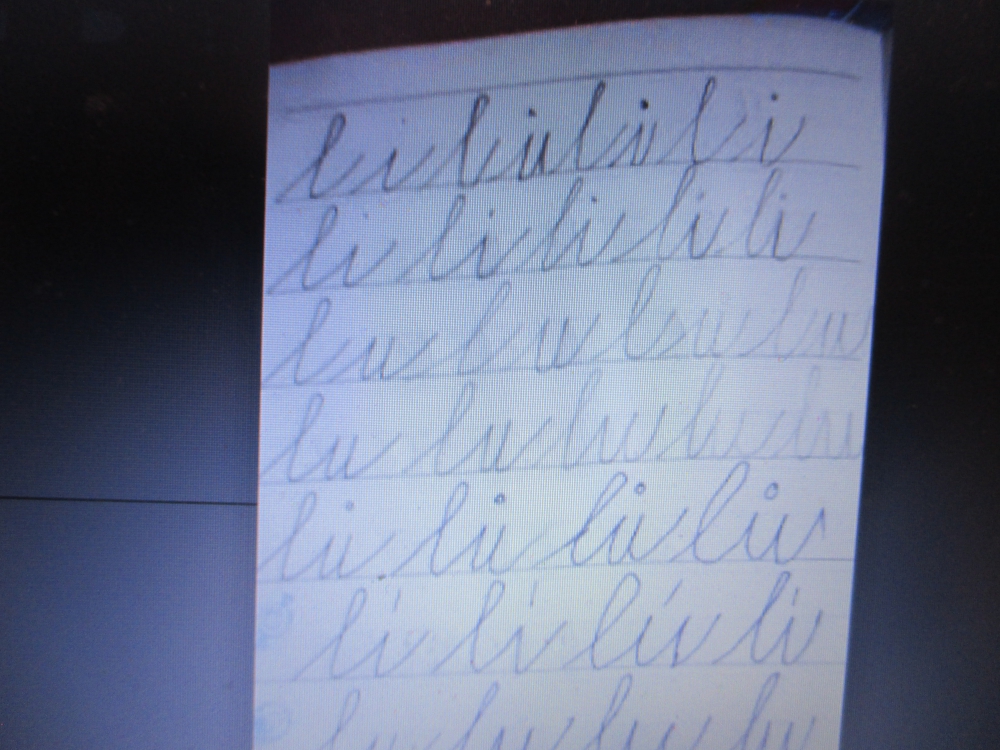 li li li li
li li li li li
lu lu lu lu
lu lu lu lu lu
lů lů lů lů
lí lí lí lí